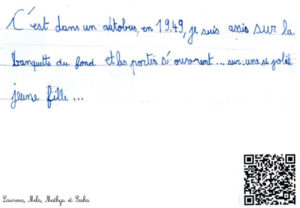 C'est dans un autobus, en 1949, je suis assis sur la
banquette du fond et les portes s'ouvrent... sur une si jolie
jeune fille...
Laurena, Mela, Maëlys et Sasha